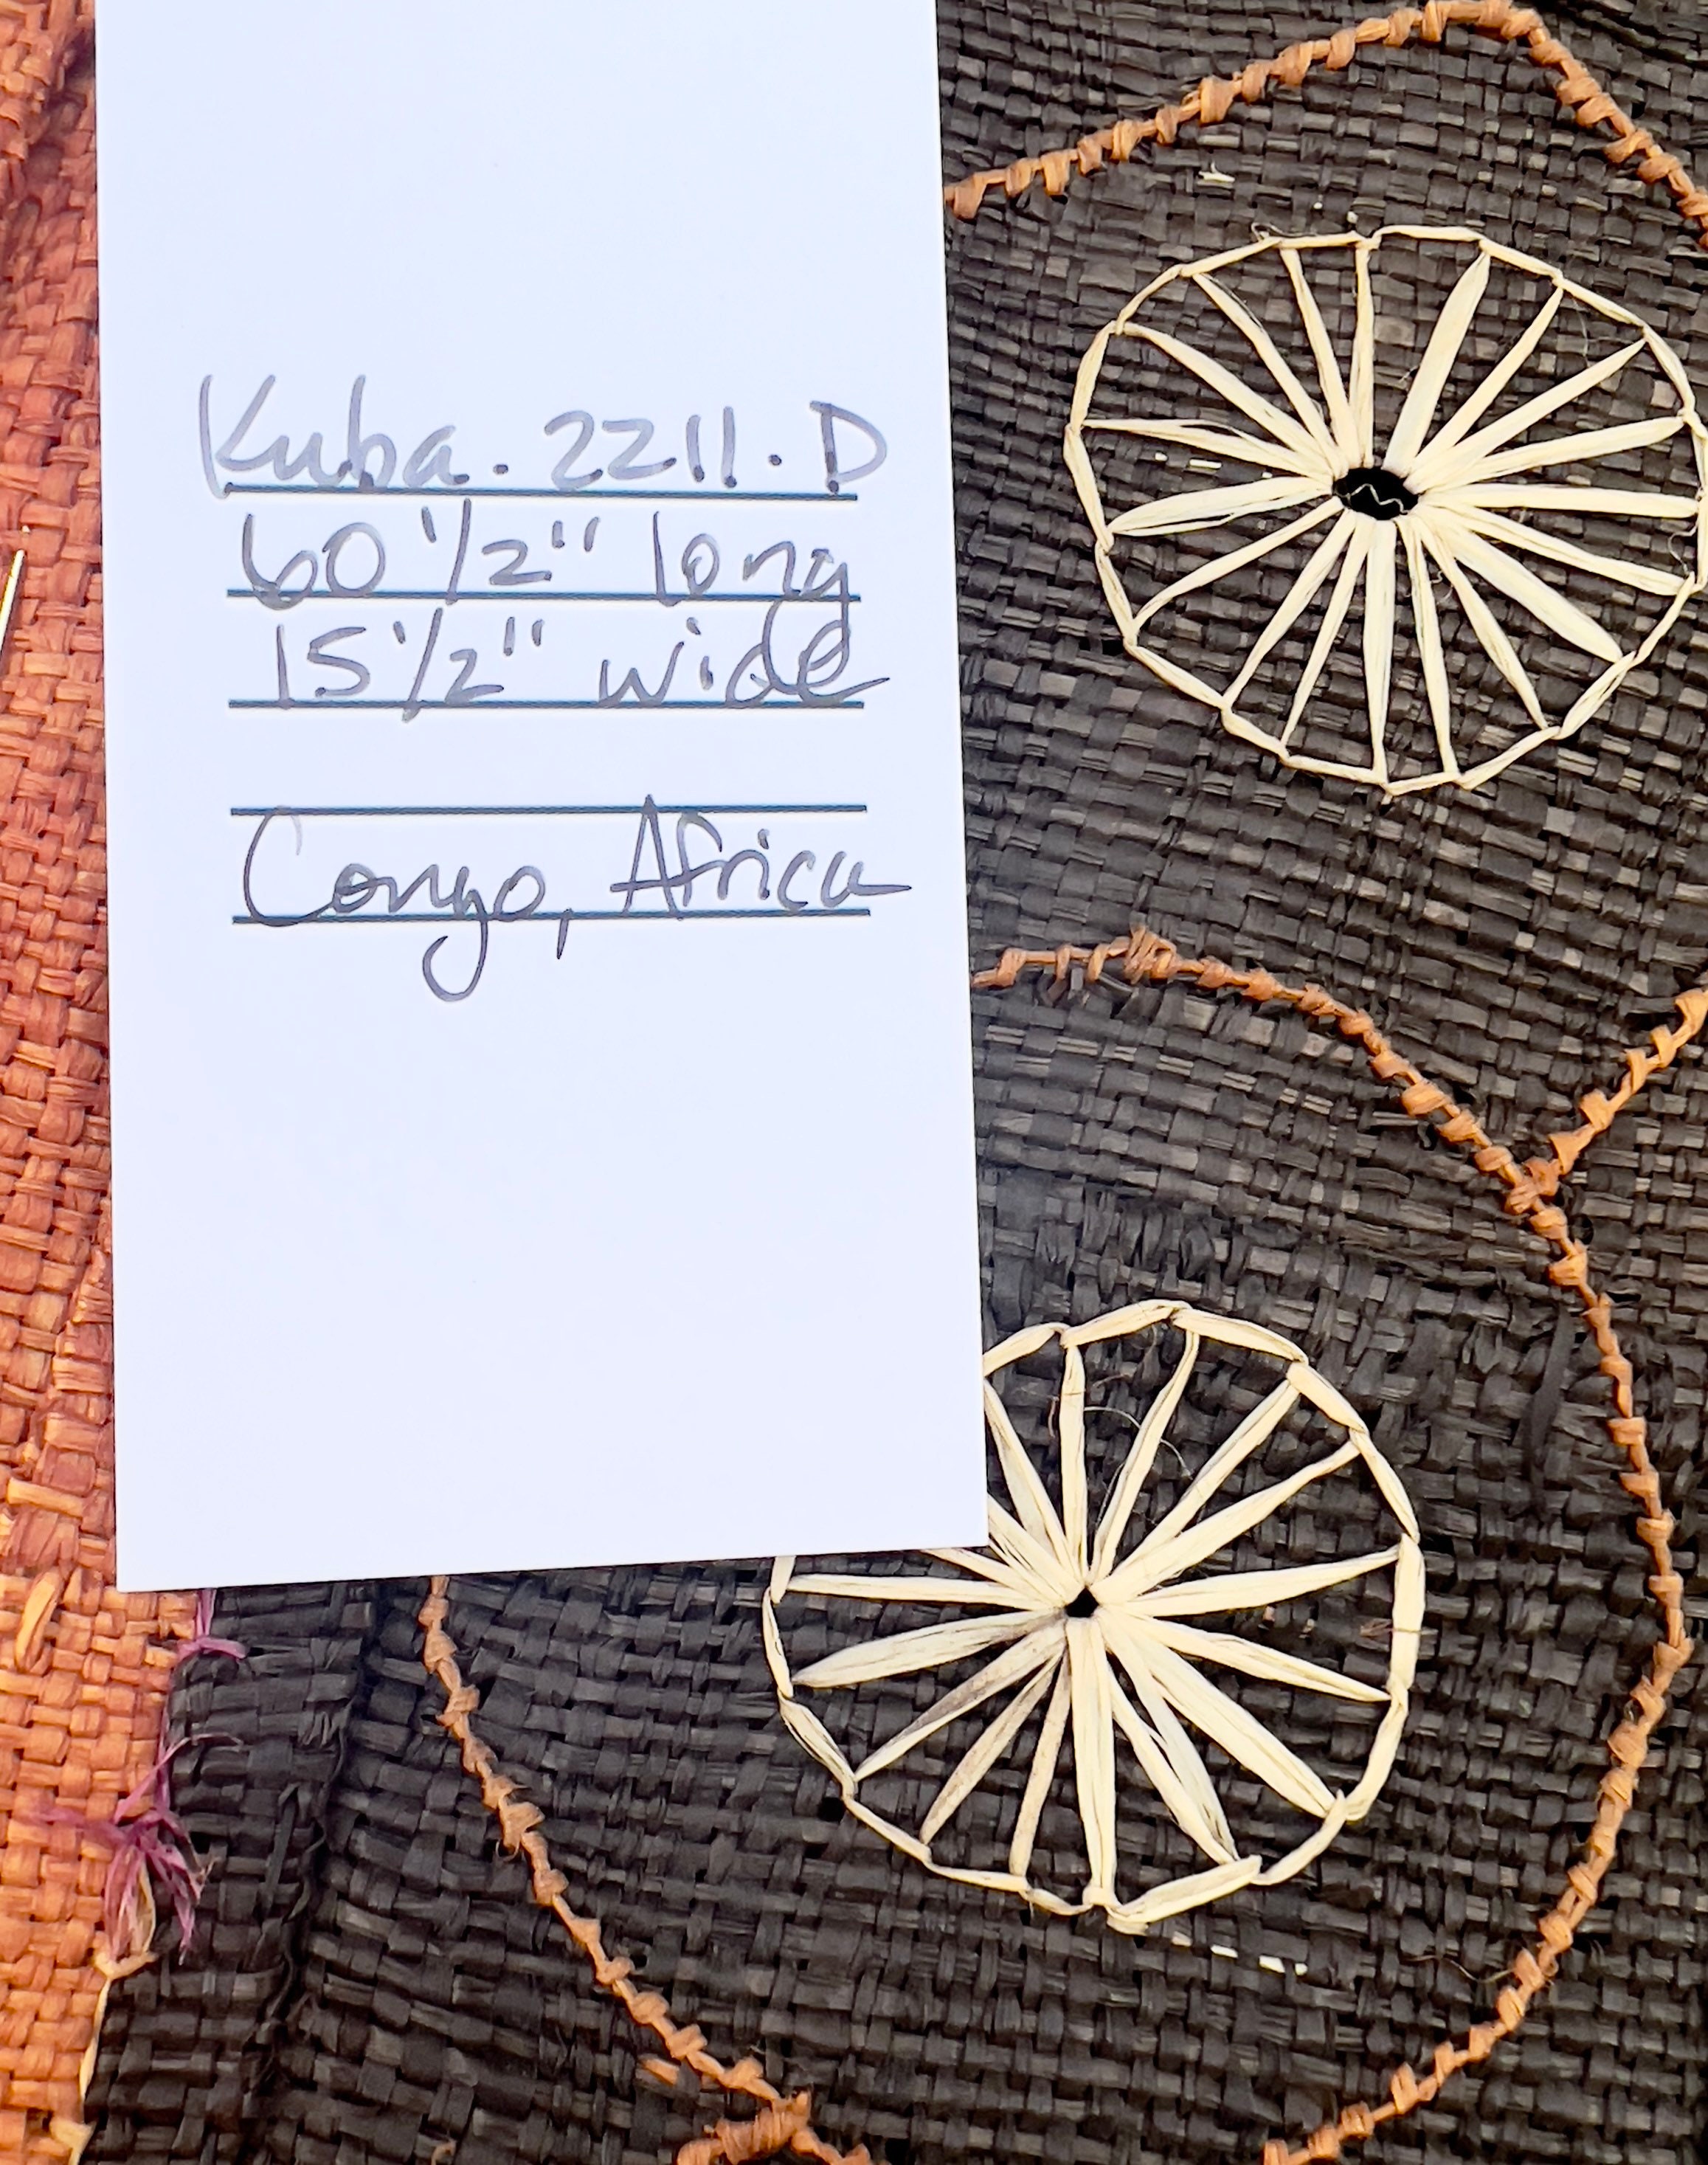 Kuba. 2211. D
60 1/2" long
15 1/2" wide
Congo, Africa